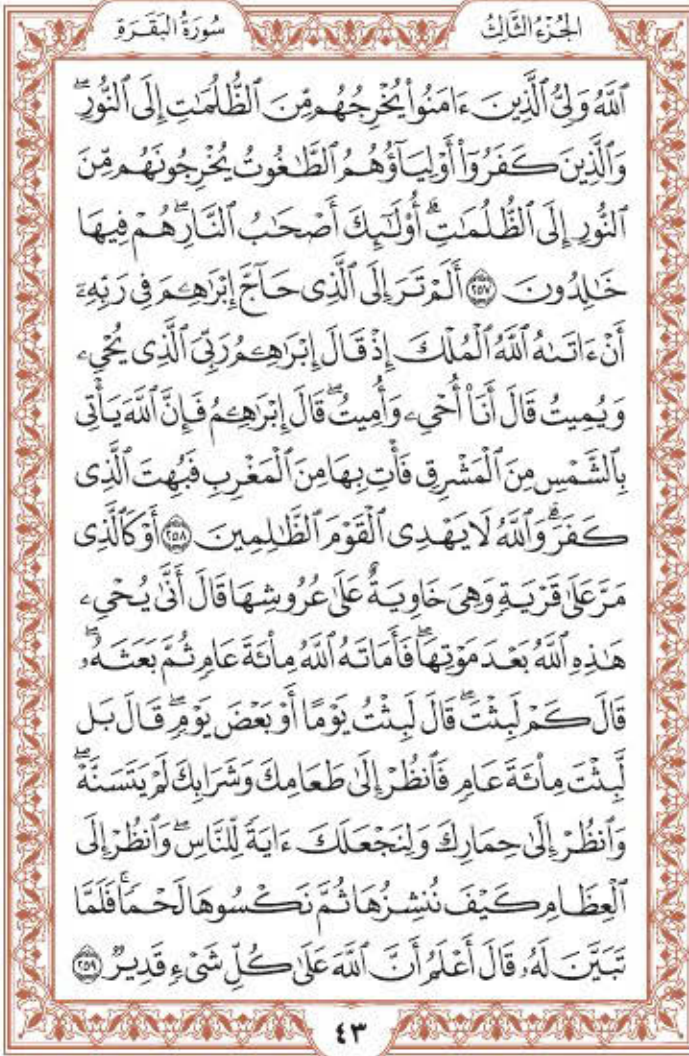 الجُزْءُ الثَّالِثُ
سُورَةُ البَقَرَةِ
ٱللَّهُ وَلِىُّ ٱلَّذِينَ ءَامَنُوا۟ يُخْرِجُهُم مِّنَ ٱلظُّلُمَٰتِ إِلَى ٱلنُّورِۖ
وَٱلَّذِينَ كَفَرُوٓا۟ أَوْلِيَآؤُهُمُ ٱلطَّٰغُوتُ يُخْرِجُونَهُم مِّنَ
ٱلنُّورِ إِلَى ٱلظُّلُمَٰتِۗ أُو۟لَٰٓئِكَ أَصْحَٰبُ ٱلنَّارِۖ هُمْ فِيهَا
خَٰلِدُونَ ٢٥٧ أَلَمْ تَرَ إِلَى ٱلَّذِى حَآجَّ إِبْرَٰهِـۧمَ فِى رَبِّهِۦٓ
أَنْ ءَاتَىٰهُ ٱللَّهُ ٱلْمُلْكَ إِذْ قَالَ إِبْرَٰهِـۧمُ رَبِّىَ ٱلَّذِى يُحْىِۦ
وَيُمِيتُ قَالَ أَنَا۠ أُحْىِۦ وَأُمِيتُۖ قَالَ إِبْرَٰهِـۧمُ فَإِنَّ ٱللَّهَ يَأْتِى
بِٱلشَّمْسِ مِنَ ٱلْمَشْرِقِ فَأْتِ بِهَا مِنَ ٱلْمَغْرِبِ فَبُهِتَ ٱلَّذِى
كَفَرَۗ وَٱللَّهُ لَا يَهْدِى ٱلْقَوْمَ ٱلظَّٰلِمِينَ ٢٥٨ أَوْ كَٱلَّذِى
مَرَّ عَلَىٰ قَرْيَةٍ وَهِىَ خَاوِيَةٌ عَلَىٰ عُرُوشِهَا قَالَ أَنَّىٰ يُحْىِۦ
هَٰذِهِ ٱللَّهُ بَعْدَ مَوْتِهَاۖ فَأَمَاتَهُ ٱللَّهُ مِا۟ئَةَ عَامٍ ثُمَّ بَعَثَهُۥۖ
قَالَ كَمْ لَبِثْتَۖ قَالَ لَبِثْتُ يَوْمًا أَوْ بَعْضَ يَوْمٍۖ قَالَ بَل
لَّبِثْتَ مِا۟ئَةَ عَامٍ فَٱنظُرْ إِلَىٰ طَعَامِكَ وَشَرَابِكَ لَمْ يَتَسَنَّهْۖ
وَٱنظُرْ إِلَىٰ حِمَارِكَ وَلِنَجْعَلَكَ ءَايَةً لِّلنَّاسِۖ وَٱنظُرْ إِلَى
ٱلْعِظَامِ كَيْفَ نُنشِزُهَا ثُمَّ نَكْسُوهَا لَحْمًاۚ فَلَمَّا
تَبَيَّنَ لَهُۥ قَالَ أَعْلَمُ أَنَّ ٱللَّهَ عَلَىٰ كُلِّ شَىْءٍ قَدِيرٌ ٢٥٩
٤٣